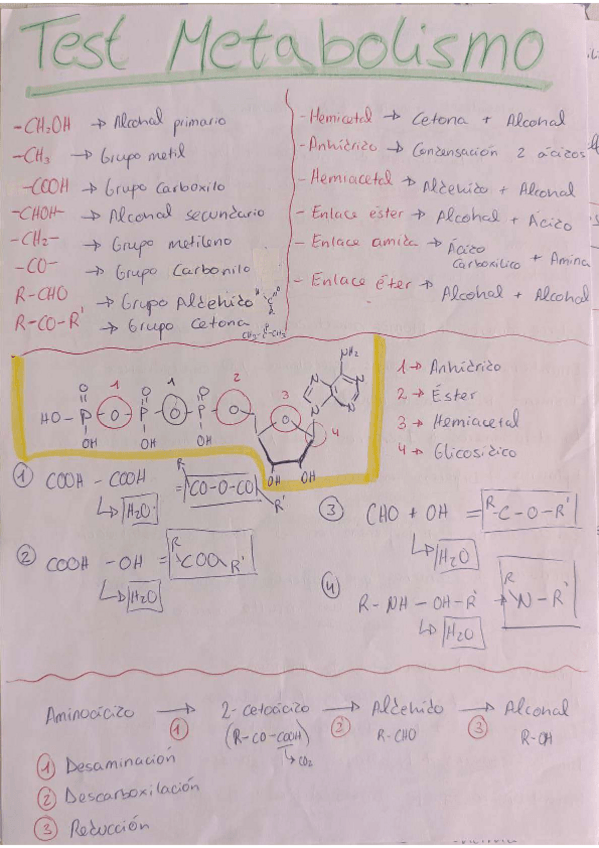 Test Metabolismo
-CH₂OH → Alcohol primario
-CH₃ → Grupo metil
-COOH → Grupo Carboxilo
-CHOH- → Alcohol secundario
-CH₂- → Grupo metileno
-CO- → Grupo Carbonilo
R-CHO → Grupo Aldehido
R-CO-R' → Grupo Cetona CH₃-C-CH₃
- Hemiacetal → Cetona + Alcohol
- Anhídrizo → Condensación 2 ácidos
- Hemiacetal → Aldehido + Alcohol
- Enlace éster → Alcohol + Ácido
- Enlace amida → Ácido Carboxilico + Amina
- Enlace éter → Alcohol + Alcohol
NH₂
N N
N N
O 1 O 1 O 2 3
HO-P-O-P-O-P-O O 4
OH OH OH
OH OH
1 → Anhídrizo
2 → Éster
3 → Hemiacetal
4 → Glicosídico
① COOH - COOH = R CO-O-CO R'
↳ H₂O
② COOH - OH = R COO R'
↳ H₂O
③ CHO + OH = R-C-O-R'
↳ H₂O
④ R-NH-OH-R' → R N-R'
↳ H₂O
Aminoácido → 2-cetoácido → Aldehido → Alcohol
① ② ③
(R-CO-COOH) R-CHO R-OH
↳ CO₂
① Desaminación
② Descarboxilación
③ Reducción